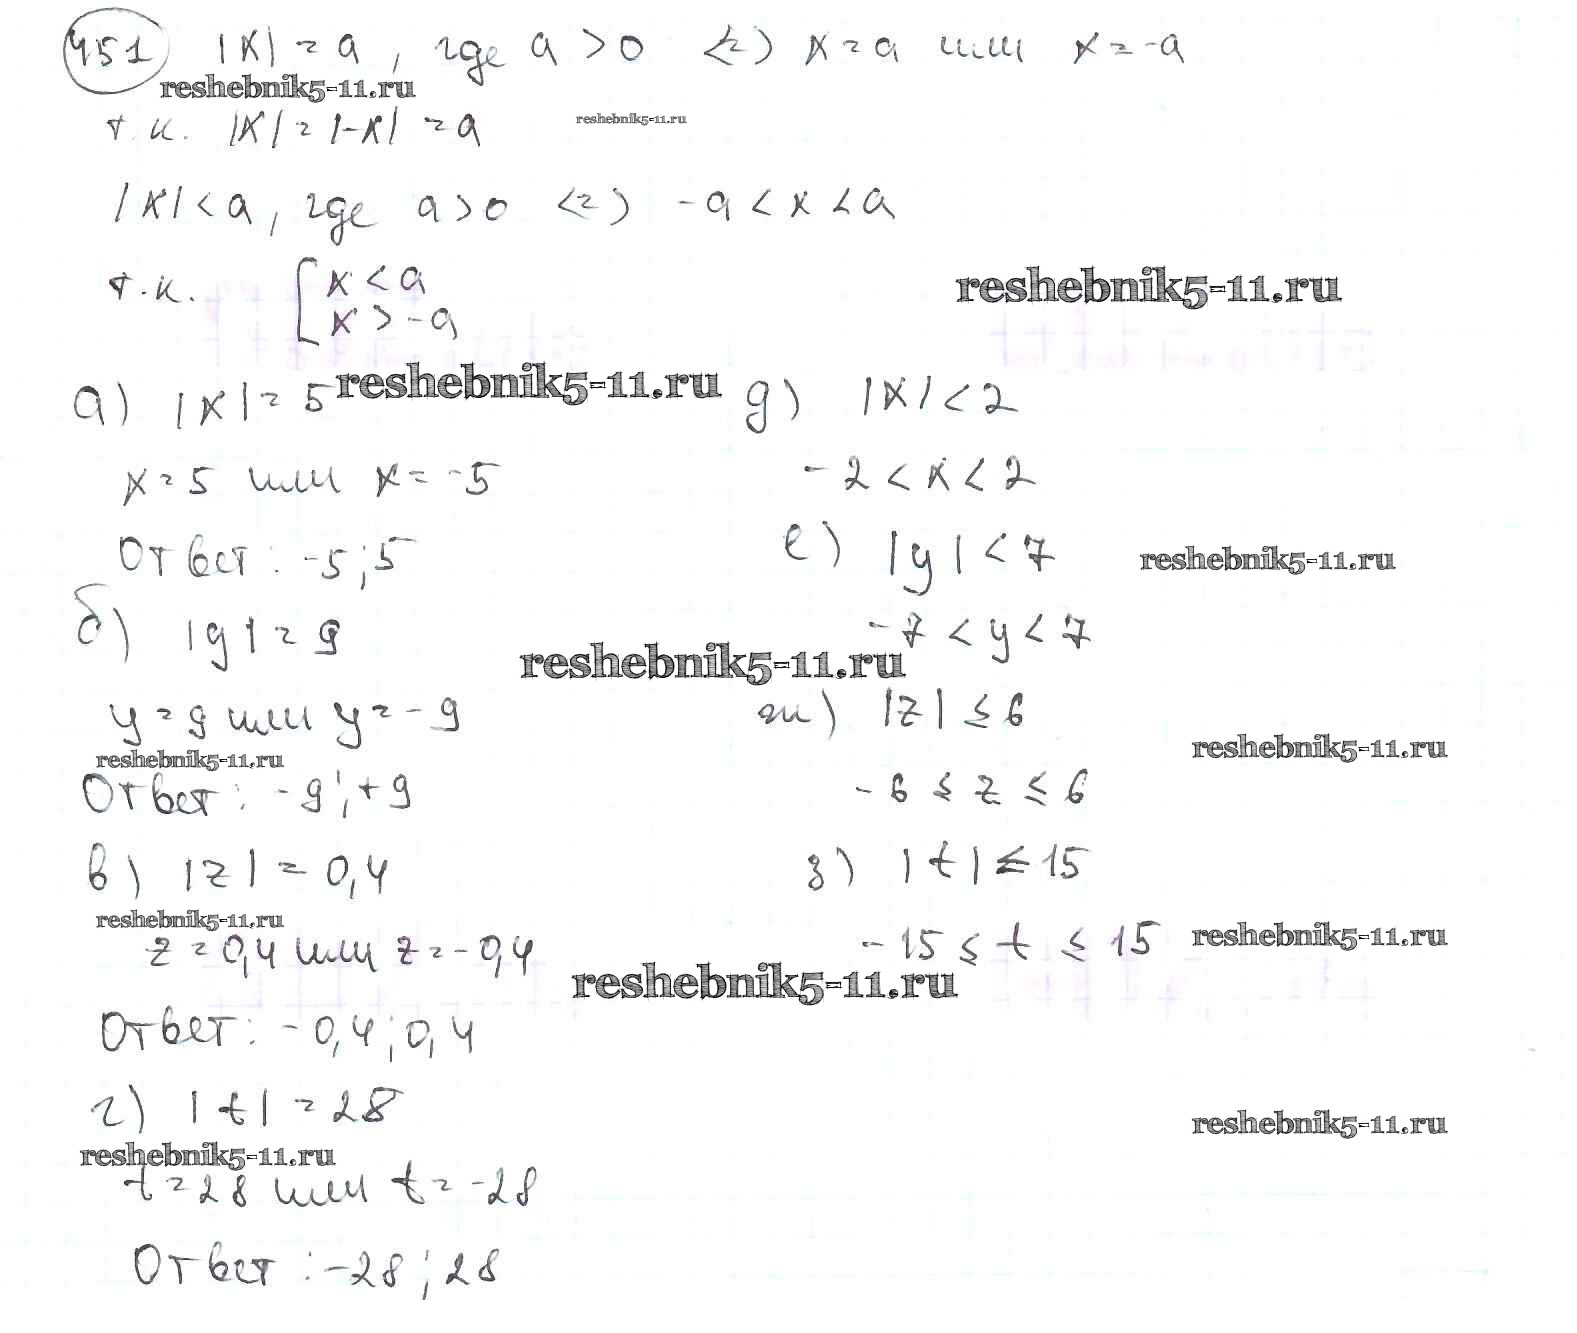 451 |x| = a, где a > 0 <=> x = a или x = -a
reshebnik5-11.ru
т.к. |x| = |-x| = a
reshebnik5-11.ru
|x| < a, где a > 0 <=> -a < x < a
т.к. [ x < a
x > -a
reshebnik5-11.ru
а) |x| = 5
reshebnik5-11.ru
x = 5 или x = -5
Ответ: -5; 5
б) |y| = 9
reshebnik5-11.ru
y = 9 или y = -9
reshebnik5-11.ru
Ответ: -9; +9
в) |z| = 0,4
reshebnik5-11.ru
z = 0,4 или z = -0,4
reshebnik5-11.ru
Ответ: -0,4; 0,4
г) |t| = 28
reshebnik5-11.ru
t = 28 или t = -28
Ответ: -28; 28
д) |x| < 2
-2 < x < 2
е) |y| < 7
reshebnik5-11.ru
-7 < y < 7
ж) |z| ≤ 6
reshebnik5-11.ru
-6 ≤ z ≤ 6
з) |t| ≤ 15
-15 ≤ t ≤ 15
reshebnik5-11.ru
reshebnik5-11.ru